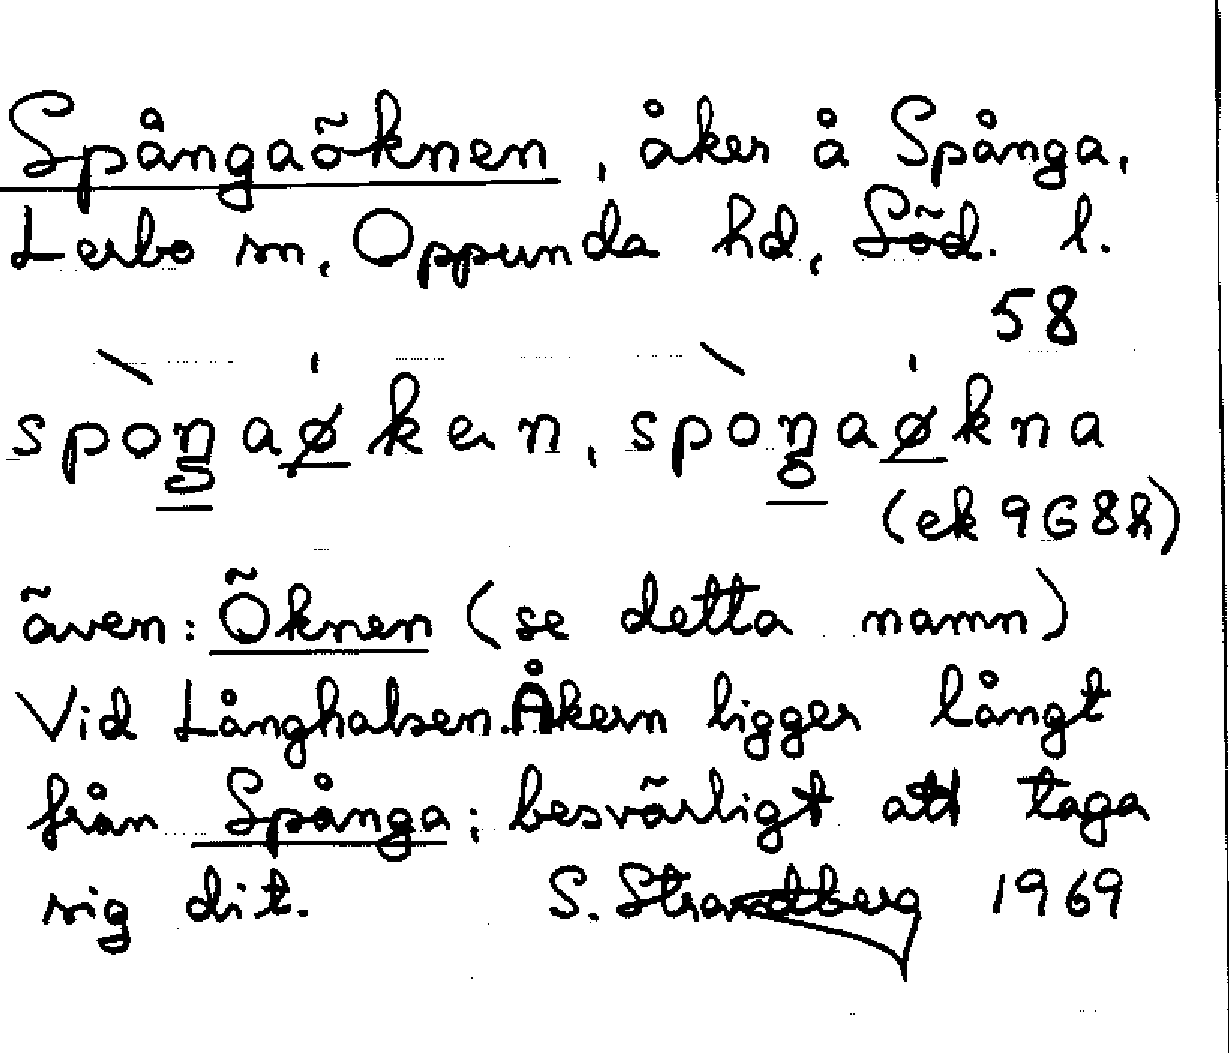 Spångaöknen, åker å Spånga,
Lerbo sn, Oppunda hd, Söd. l.
58
spòŋaø̱ken, spòŋaø̱kna
(ek 9G8h)
även: Öknen (se detta namn)
Vid Långhalsen. Åkern ligger långt
från Spånga; besvärligt att taga
sig dit. S. Strandberg 1969